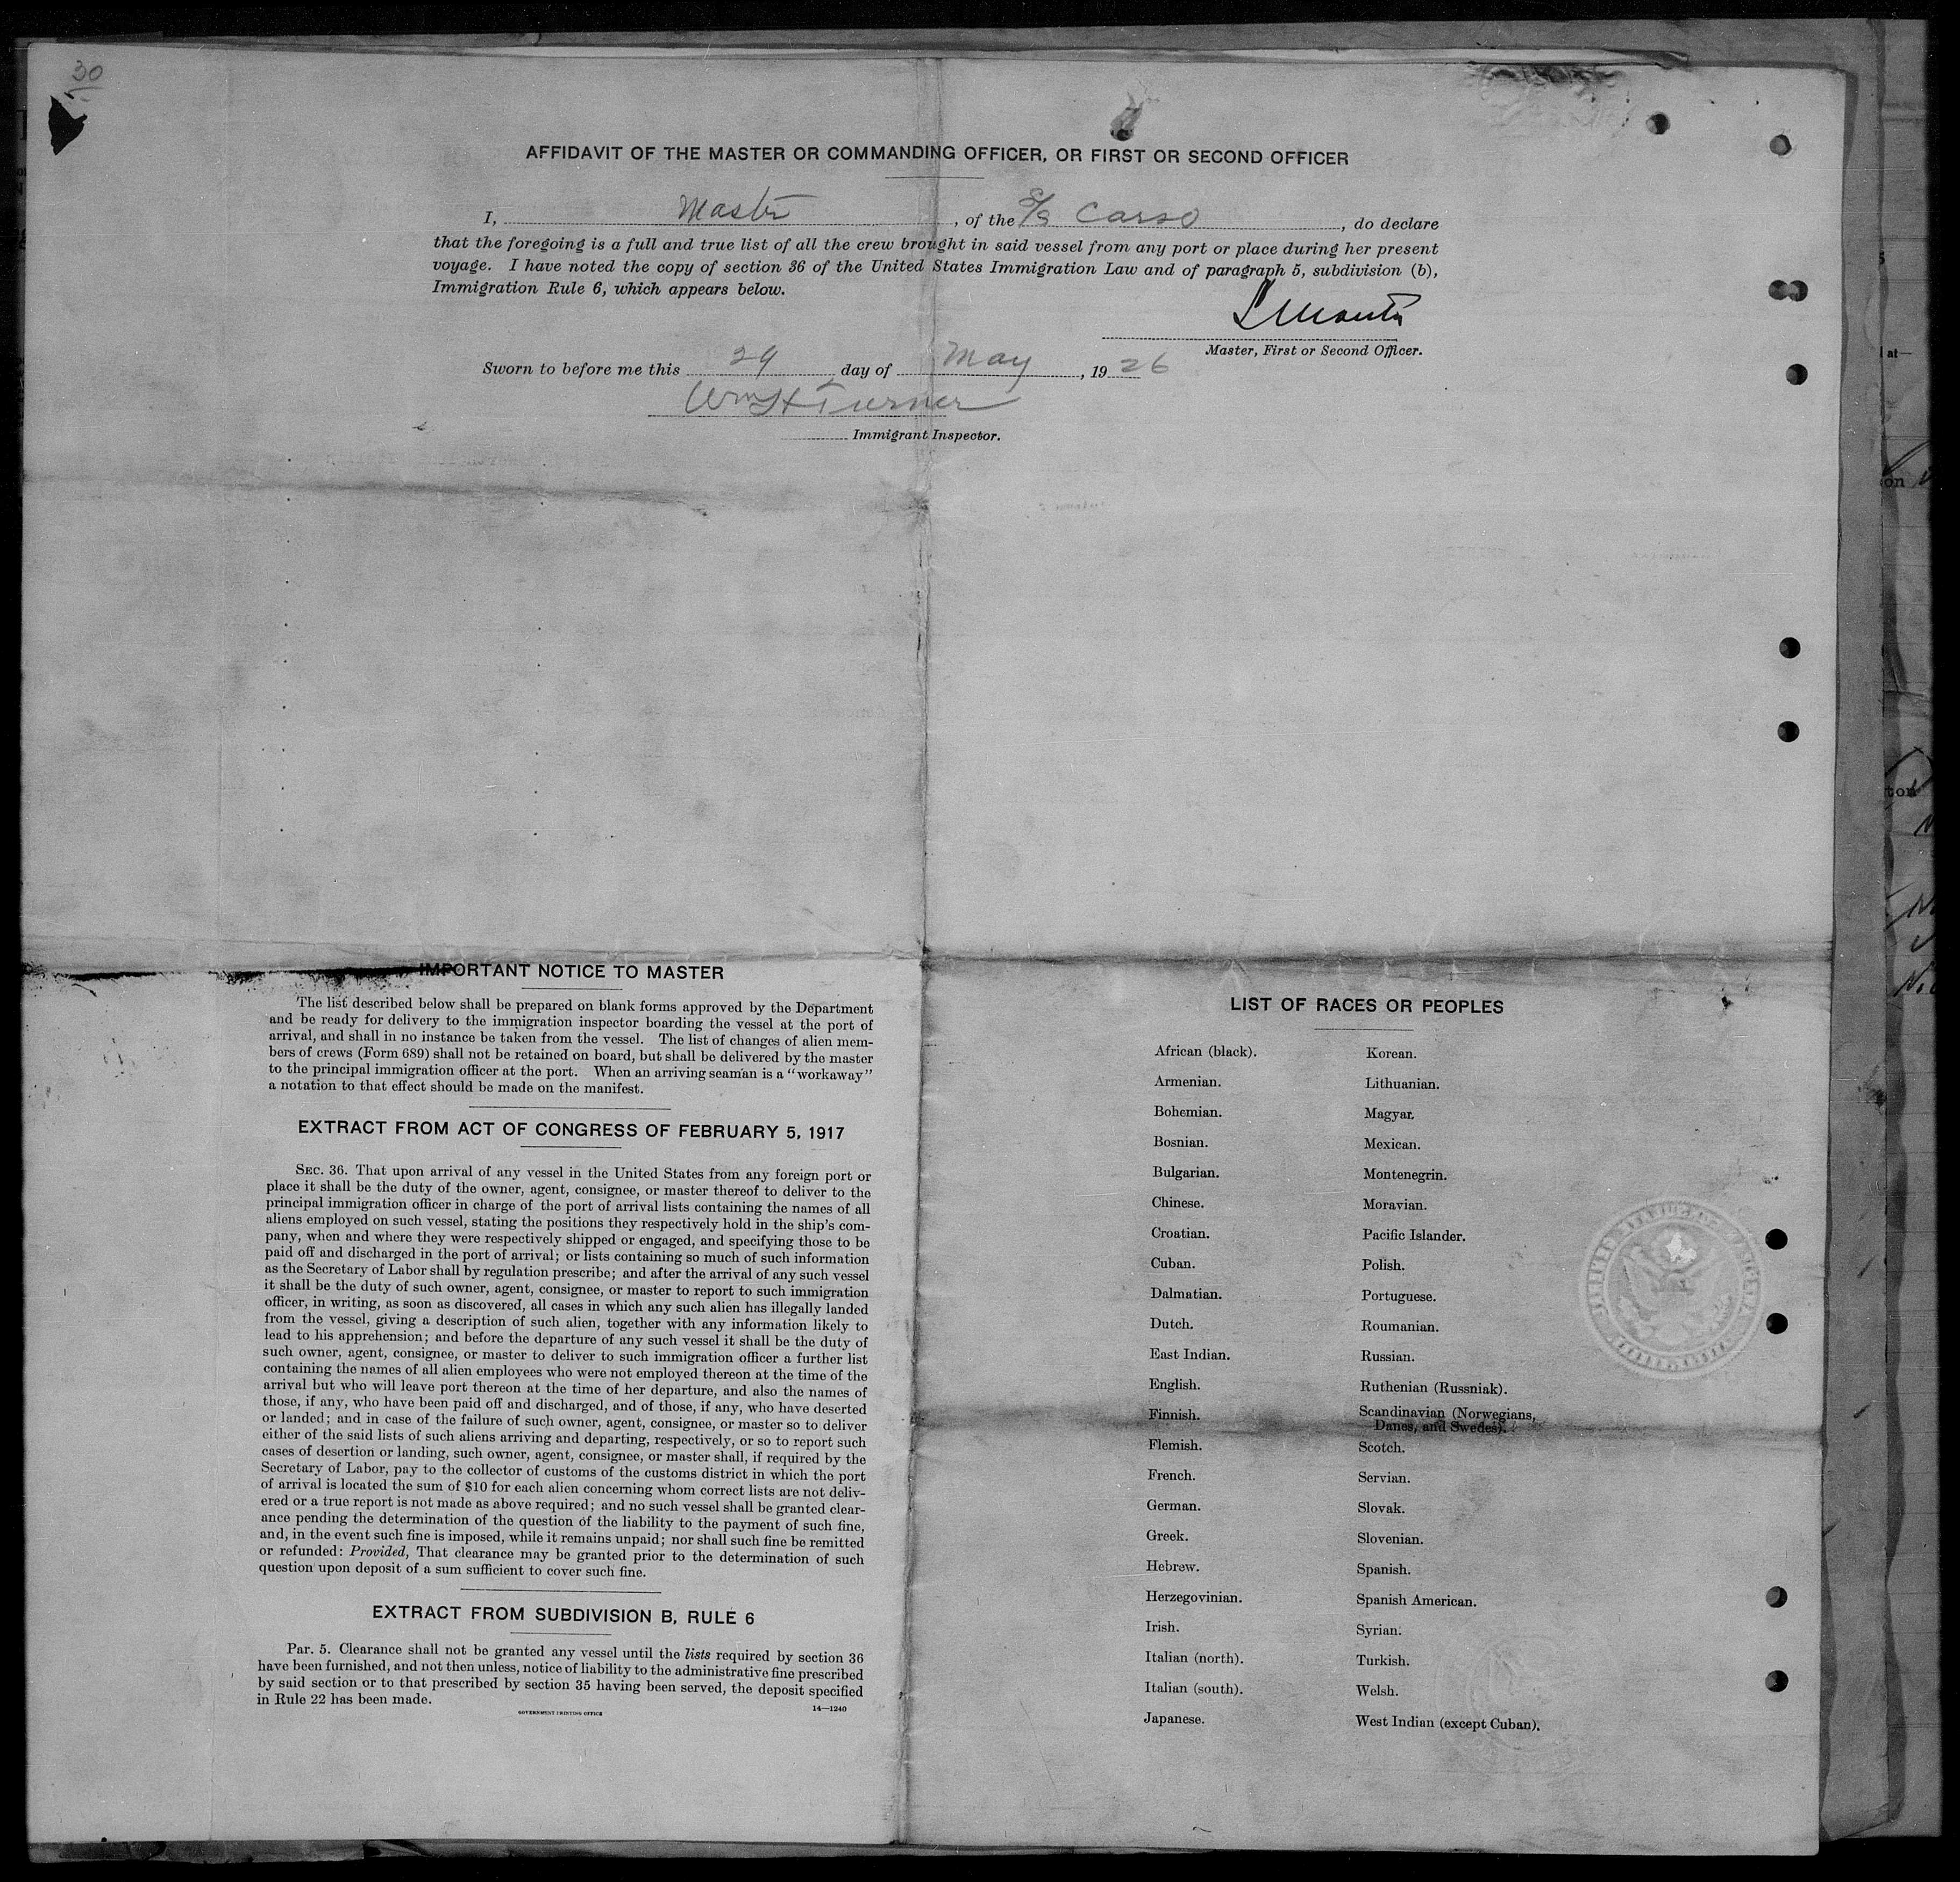 30
AFFIDAVIT OF THE MASTER OR COMMANDING OFFICER, OR FIRST OR SECOND OFFICER
I, Master, of the S/S Carso, do declare
that the foregoing is a full and true list of all the crew brought in said vessel from any port or place during her present
voyage. I have noted the copy of section 36 of the United States Immigration Law and of paragraph 5, subdivision (b),
Immigration Rule 6, which appears below.
Master, First or Second Officer.
Sworn to before me this 29 day of May, 1926
Wm H Turner
Immigrant Inspector.
IMPORTANT NOTICE TO MASTER
The list described below shall be prepared on blank forms approved by the Department
and be ready for delivery to the immigration inspector boarding the vessel at the port of
arrival, and shall in no instance be taken from the vessel. The list of changes of alien mem-
bers of crews (Form 689) shall not be retained on board, but shall be delivered by the master
to the principal immigration officer at the port. When an arriving seaman is a "workaway"
a notation to that effect should be made on the manifest.
EXTRACT FROM ACT OF CONGRESS OF FEBRUARY 5, 1917
SEC. 36. That upon arrival of any vessel in the United States from any foreign port or
place it shall be the duty of the owner, agent, consignee, or master thereof to deliver to the
principal immigration officer in charge of the port of arrival lists containing the names of all
aliens employed on such vessel, stating the positions they respectively hold in the ship's com-
pany, when and where they were respectively shipped or engaged, and specifying those to be
paid off and discharged in the port of arrival; or lists containing so much of such information
as the Secretary of Labor shall by regulation prescribe; and after the arrival of any such vessel
it shall be the duty of such owner, agent, consignee, or master to report to such immigration
officer, in writing, as soon as discovered, all cases in which any such alien has illegally landed
from the vessel, giving a description of such alien, together with any information likely to
lead to his apprehension; and before the departure of any such vessel it shall be the duty of
such owner, agent, consignee, or master to deliver to such immigration officer a further list
containing the names of all alien employees who were not employed thereon at the time of the
arrival but who will leave port thereon at the time of her departure, and also the names of
those, if any, who have been paid off and discharged, and of those, if any, who have deserted
or landed; and in case of the failure of such owner, agent, consignee, or master so to deliver
either of the said lists of such aliens arriving and departing, respectively, or so to report such
cases of desertion or landing, such owner, agent, consignee, or master shall, if required by the
Secretary of Labor, pay to the collector of customs of the customs district in which the port
of arrival is located the sum of $10 for each alien concerning whom correct lists are not deliv-
ered or a true report is not made as above required; and no such vessel shall be granted clear-
ance pending the determination of the question of the liability to the payment of such fine,
and, in the event such fine is imposed, while it remains unpaid; nor shall such fine be remitted
or refunded: Provided, That clearance may be granted prior to the determination of such
question upon deposit of a sum sufficient to cover such fine.
EXTRACT FROM SUBDIVISION B, RULE 6
Par. 5. Clearance shall not be granted any vessel until the lists required by section 36
have been furnished, and not then unless, notice of liability to the administrative fine prescribed
by said section or to that prescribed by section 35 having been served, the deposit specified
in Rule 22 has been made.
GOVERNMENT PRINTING OFFICE 14—1240
LIST OF RACES OR PEOPLES
African (black).
Armenian.
Bohemian.
Bosnian.
Bulgarian.
Chinese.
Croatian.
Cuban.
Dalmatian.
Dutch.
East Indian.
English.
Finnish.
Flemish.
French.
German.
Greek.
Hebrew.
Herzegovinian.
Irish.
Italian (north).
Italian (south).
Japanese.
Korean.
Lithuanian.
Magyar.
Mexican.
Montenegrin.
Moravian.
Pacific Islander.
Polish.
Portuguese.
Roumanian.
Russian.
Ruthenian (Russniak).
Scandinavian (Norwegians,
Danes, and Swedes).
Scotch.
Servian.
Slovak.
Slovenian.
Spanish.
Spanish American.
Syrian.
Turkish.
Welsh.
West Indian (except Cuban).